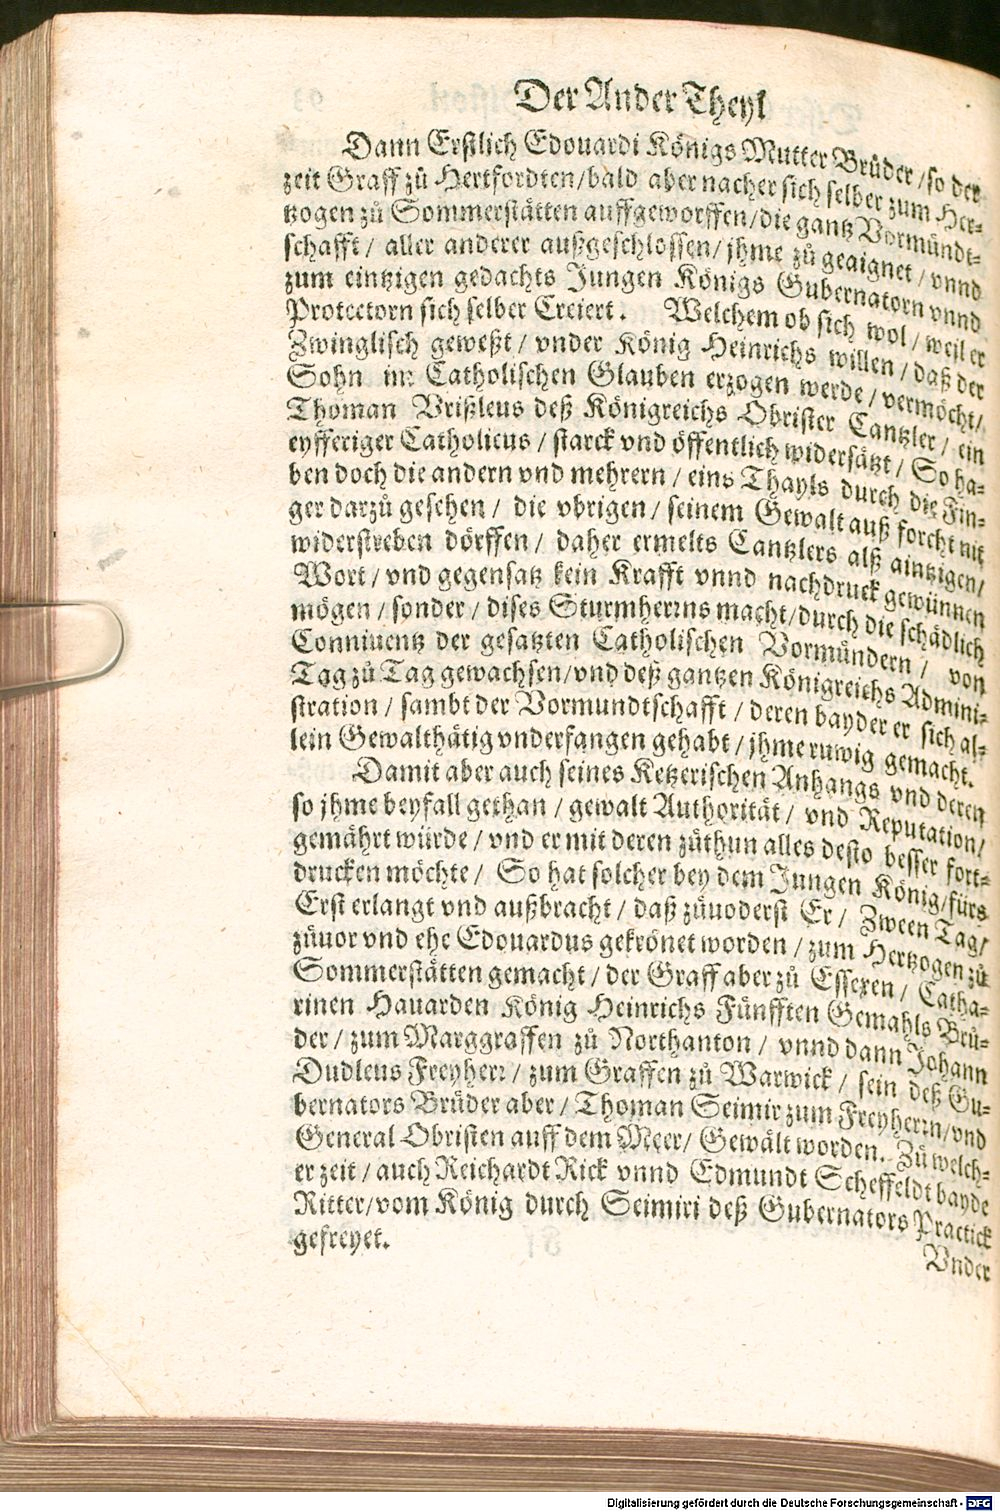 Der Ander Theyl
Dann Erstlich Edouardi Königs Mutter Brüder / so der
zeit Graff zů Hertfordten / bald aber nacher sich selber zum Her-
tzogen zů Sommerstätten auffgeworffen / die gantz Vormündt-
schafft / aller anderer außgeschlossen / jhme zů geaignet / vnnd
zum eintzigen gedachts Jungen Königs Gubernatorn vnnd
Protectorn sich selber Creiert. Welchem ob sich wol / weil er
Zwinglisch geweßt / vnder König Heinrichs willen / daß der
Sohn im Catholischen Glauben erzogen werde / vermöcht /
Thoman Vrißleus deß Königreichs Obrister Cantzler / ein
eyfferiger Catholicus / starck vnd öffentlich widersätzt / So ha-
ben doch die andern vnd mehrern / eins Thayls durch die Fin-
ger darzů gesehen / die vbrigen / seinem Gewalt auß forcht nit
widerstreben dörffen / daher ermelts Cantzlers alß aintzigen /
Wort / vnd gegensatz kein Krafft vnnd nachdruck gewünnen
mögen / sonder / dises Sturmherrns macht / durch die schädlich
Conniuentz der gesatzten Catholischen Vormündern / von
Tag zů Tag gewachsen / vnd deß gantzen Königreichs Admini-
stration / sambt der Vormundtschafft / deren bayder er sich al-
lein Gewalthätig vnderfangen gehabt / jhme ruwig gemacht.
Damit aber auch seines Ketzerischen Anhangs vnd deren
so jhme beyfall gethan / gewalt Authorität / vnd Reputation /
gemährt würde / vnd er mit deren zůthun alles desto besser fort-
drucken möchte / So hat solcher bey dem Jungen König / fürs
Erst erlangt vnd außbracht / daß zůuoderst Er / Zween Tag /
zůuor vnd ehe Edouardus gekrönet worden / zum Hertzogen zů
Sommerstätten gemacht / der Graff aber zů Essexen / Catha-
rinen Hauarden König Heinrichs Fünfften Gemahls Brü-
der / zum Marggraffen zů Northanton / vnnd dann Johann
Dudleus Freyherr / zum Graffen zů Warwick / sein deß Gu-
bernators Brüder aber / Thoman Seimir zum Freyherrn / vnd
General Obristen auff dem Meer / Gewält worden. Zů welch-
er zeit / auch Reichardt Rick vnnd Edmundt Scheffeldt bayde
Ritter / vom König durch Seimiri deß Gubernators Practick
gefreyet.
Vnder
Digitalisierung gefördert durch die Deutsche Forschungsgemeinschaft - DFG